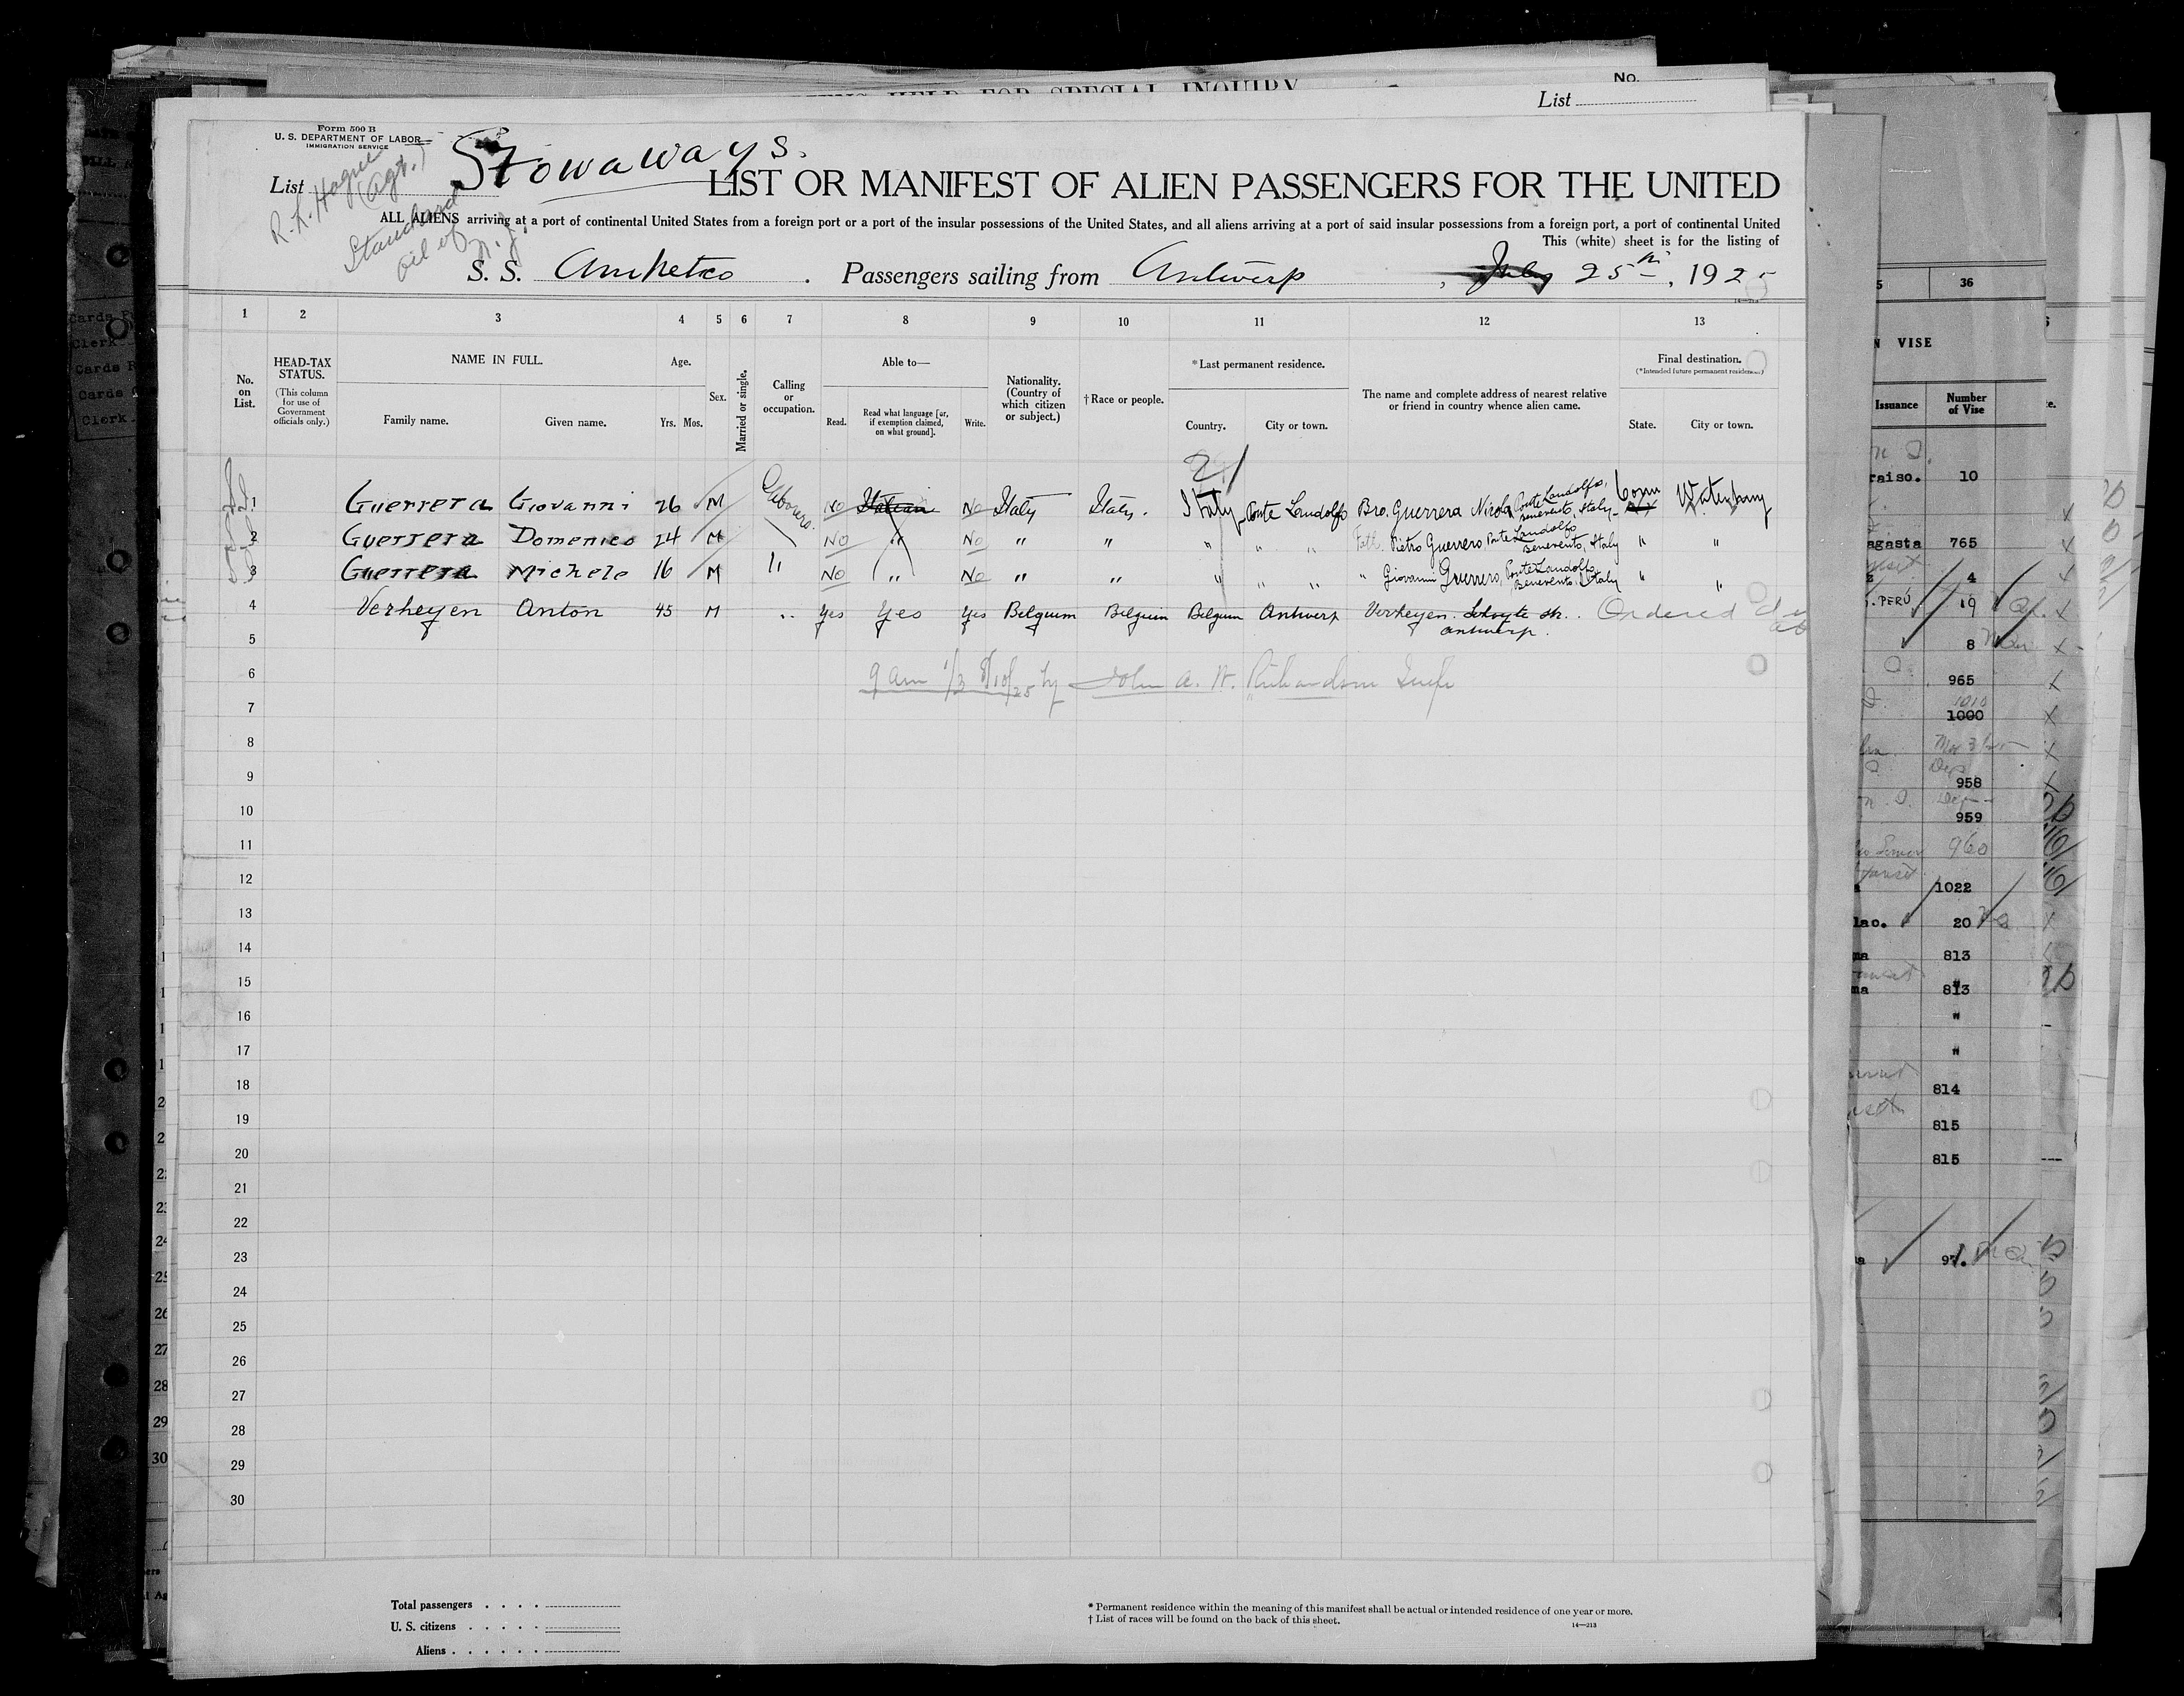 No.
HELD FOR SPECIAL INQUIRY
List
Form 500 B
U. S. DEPARTMENT OF LABOR
IMMIGRATION SERVICE
Stowaways.
List
R. L. Hague
(Agt.)
Standard
Oil of
N. J.
LIST OR MANIFEST OF ALIEN PASSENGERS FOR THE UNITED
ALL ALIENS arriving at a port of continental United States from a foreign port or a port of the insular possessions of the United States, and all aliens arriving at a port of said insular possessions from a foreign port, a port of continental United
This (white) sheet is for the listing of
S. S. Ampetco. Passengers sailing from Antwerp, July 25th, 1925
14—213
1 2 3 4 5 6 7 8 9 10 11 12 13
No. on List.
HEAD-TAX STATUS.
(This column for use of Government officials only.)
NAME IN FULL.
Family name. Given name.
Age.
Yrs. Mos.
Sex.
Married or single.
Calling or occupation.
Able to—
Read. Read what language [or, if exemption claimed, on what ground]. Write.
Nationality. (Country of which citizen or subject.)
†Race or people.
*Last permanent residence.
Country. City or town.
The name and complete address of nearest relative or friend in country whence alien came.
Final destination.
(*Intended future permanent residence.)
State. City or town.
1 Guerrera Giovanni 26 M Labourer. No Italian No Italy Italy. Italy Ponte Landolfo Bro. Guerrera Nicola, Ponte Landolfo, Benevento, Italy Conn Waterbury
2 Guerrera Domenico 24 M No " No " " " " " Fath. Pietro Guerrero, Ponte Landolfo, Benevento, Italy " "
3 Guerrera Michele 16 M " No " No " " " " " " Giovanni Guerrero, Ponte Landolfo, Benevento, Italy " "
4 Verheyen Anton 45 M " Yes Yes Yes Belgium Belgium Belgium Antwerp Verheyen. Antwerp. Ordered
5
6 9 am 1/3 8/10/25 by John A. W. Richardson
7
8
9
10
11
12
13
14
15
16
17
18
19
20
21
22
23
24
25
26
27
28
29
30
Total passengers
U. S. citizens
Aliens
* Permanent residence within the meaning of this manifest shall be actual or intended residence of one year or more.
† List of races will be found on the back of this sheet.
14—213
36
VISE
Issuance Number of Vise
raiso. 10
agasta 765
4
PERÚ 19
8
965
1010
1000
958
959
960
1022
lao. 20
ma 813
ma 813
"
"
814
815
815